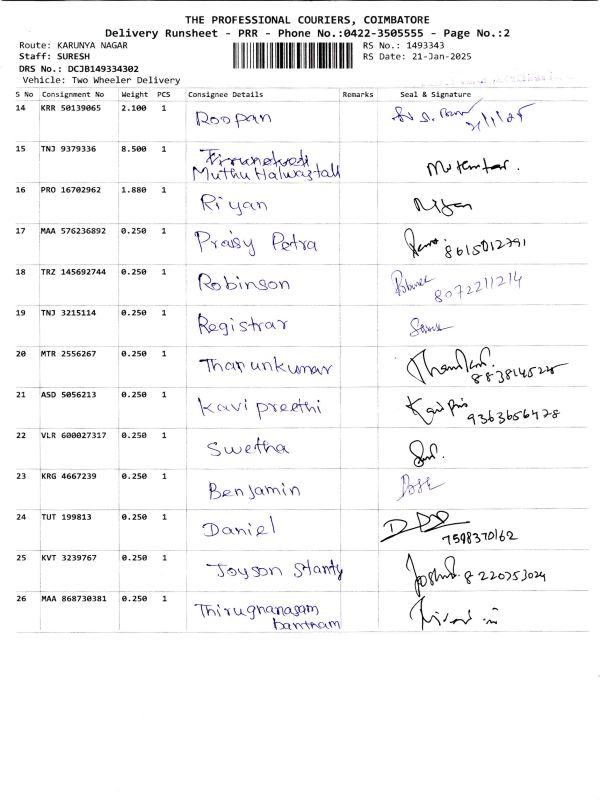 THE PROFESSIONAL COURIERS, COIMBATORE
Delivery Runsheet - PRR - Phone No.:0422-3505555 - Page No.:2
Route: KARUNYA NAGAR RS No.: 1493343
Staff: SURESH RS Date: 21-Jan-2025
DRS No.: DCJB149334302
Vehicle: Two Wheeler Delivery
S No Consignment No Weight PCS Consignee Details Remarks Seal & Signature
14 KRR 50139065 2.100 1 Roopan
21/1/25
15 TNJ 9379336 8.500 1
Muthu
16 PRO 16702962 1.880 1 Riyan
17 MAA 576236892 0.250 1 Praisy Petra 8615012791
18 TRZ 145692744 0.250 1 Robinson 8072211214
19 TNJ 3215114 0.250 1 Registrar
20 MTR 2556267 0.250 1 Tharunkumar
21 ASD 5056213 0.250 1 Kavi preethi 9363656478
22 VLR 600027317 0.250 1 Swetha
23 KRG 4667239 0.250 1 Benjamin
24 TUT 199813 0.250 1 Daniel 7598370162
25 KVT 3239767 0.250 1 Joyson
26 MAA 868730381 0.250 1 Thirugnanasam
bantham